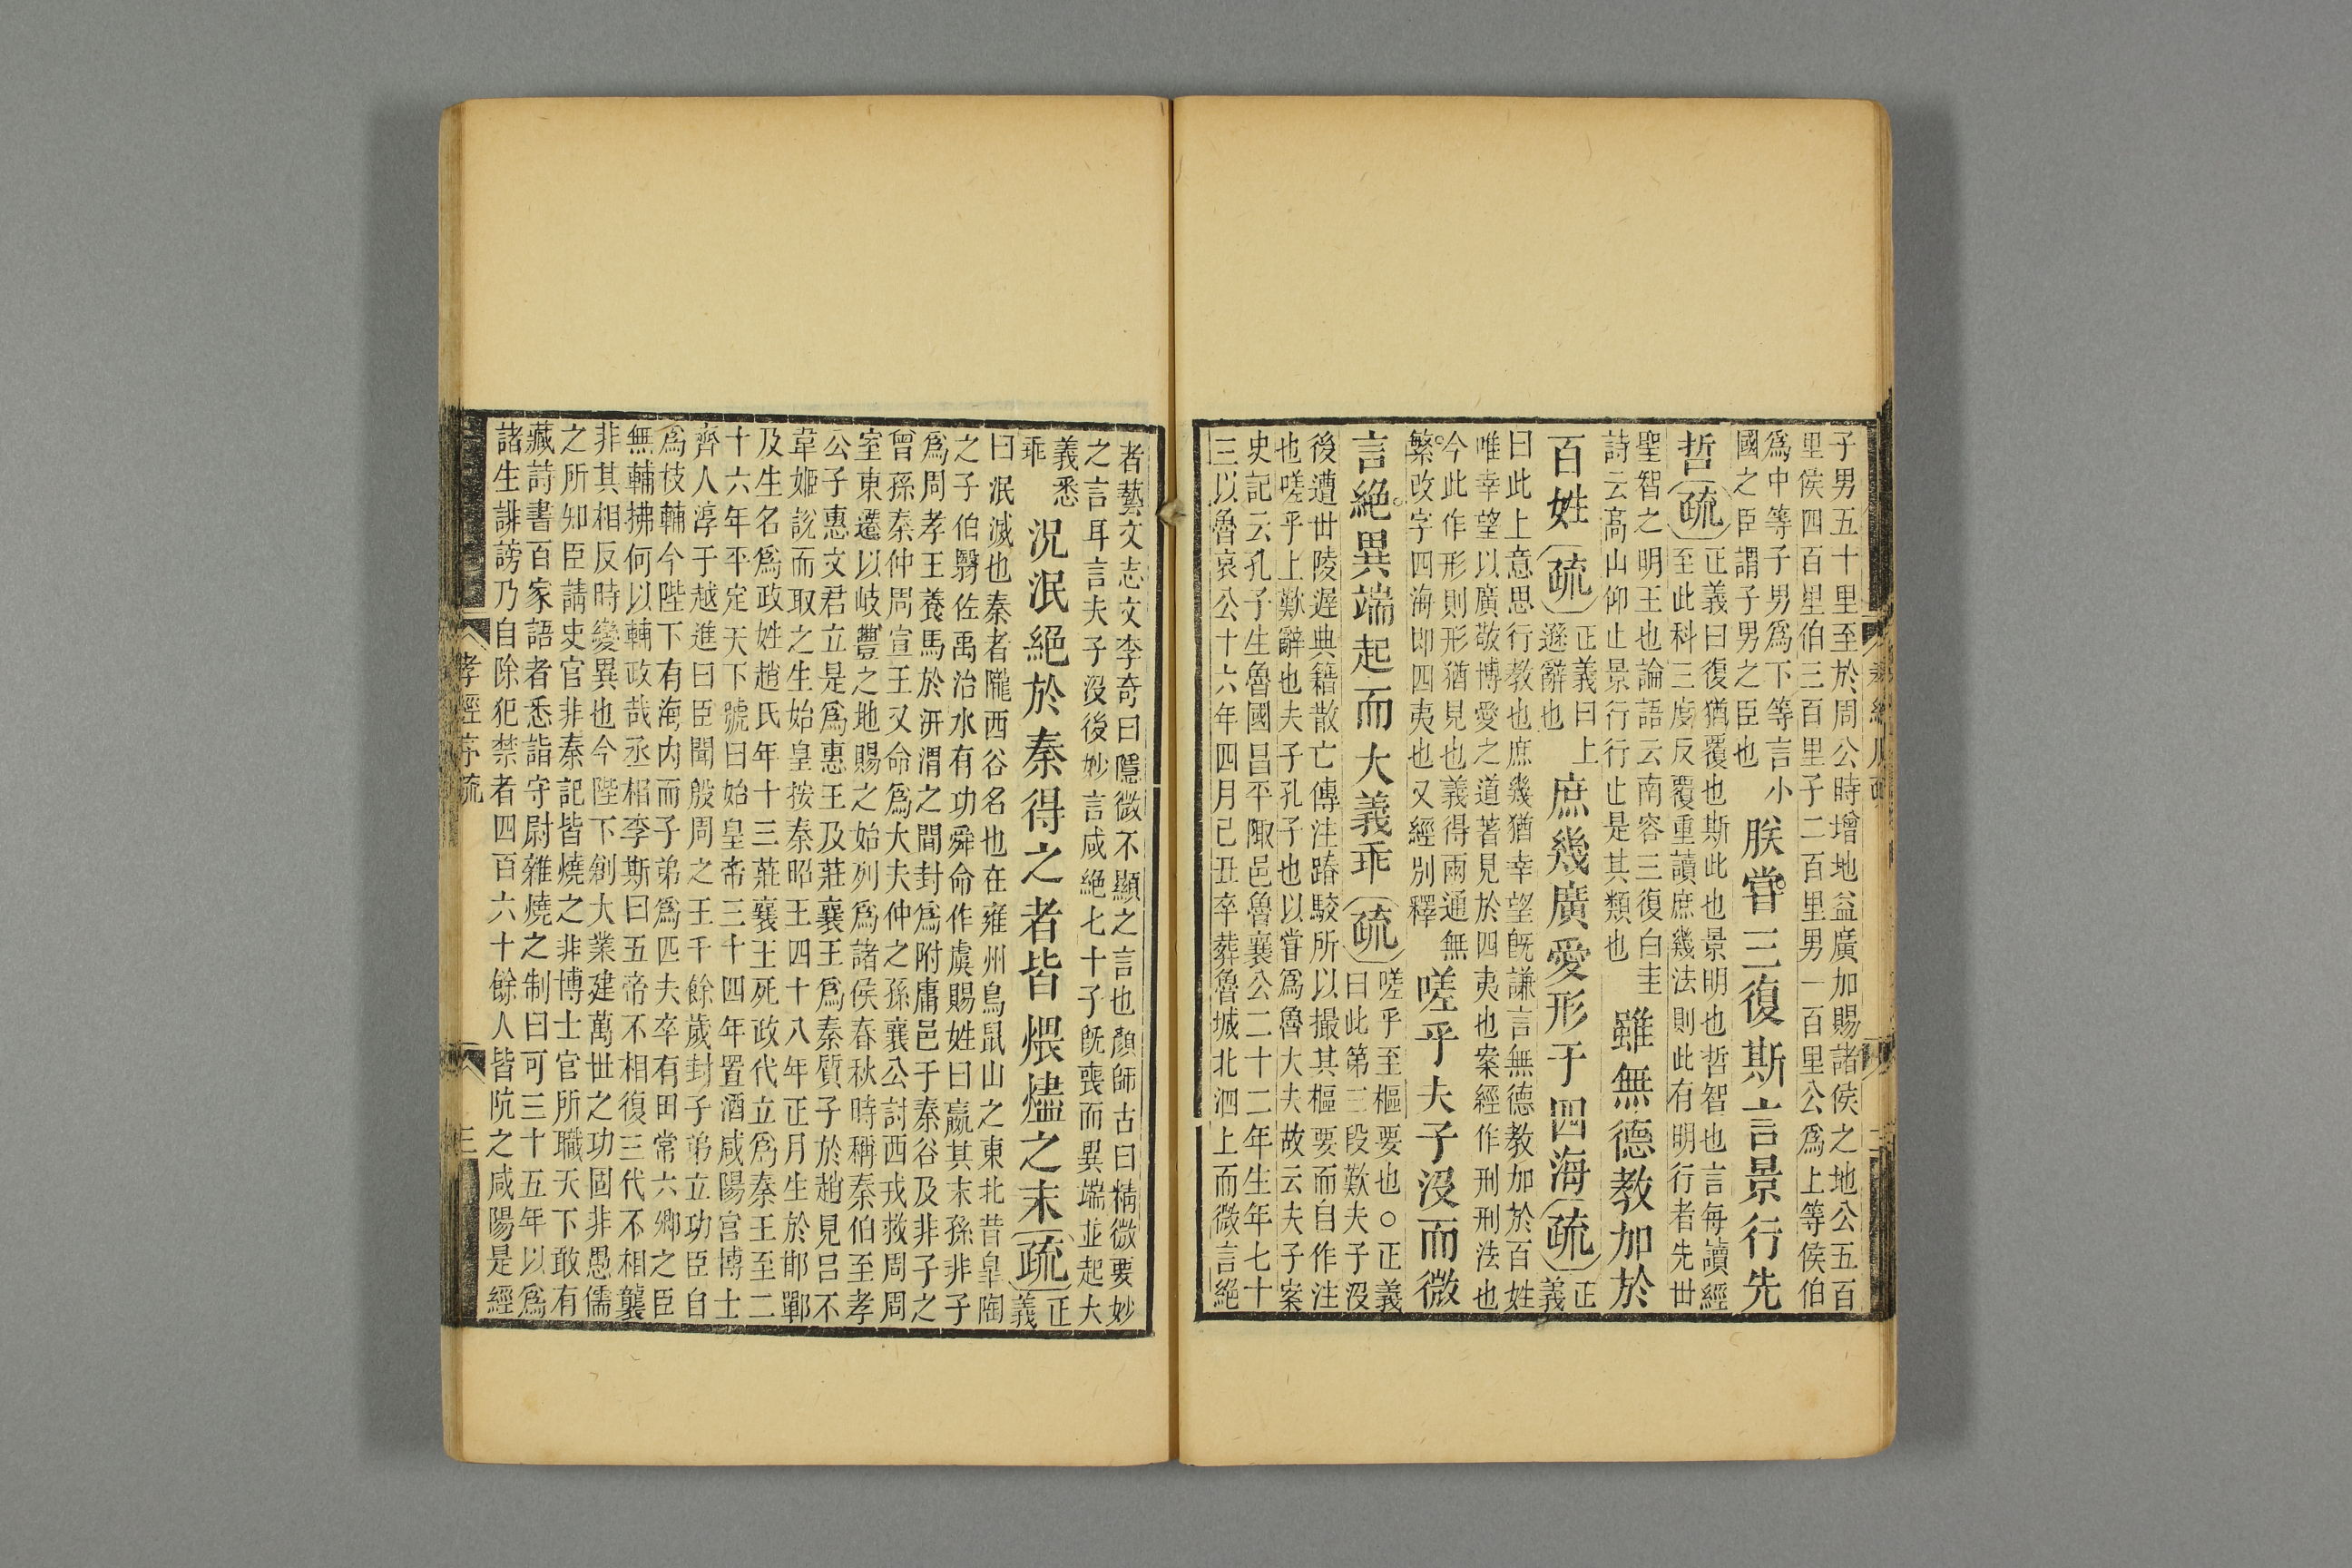 子男五十里至於周公時增地益廣加賜諸侯之地公五百
里侯四百里伯三百里子二百里男一百里公爲上等侯伯
爲中等子男爲下等言小
國之臣謂子男之臣也
朕嘗三復斯言景行先
哲疏
正義曰復猶覆也斯此也景明也哲智也言每讀經
至此科三度反覆重讀庶幾法則此有明行者先世
聖智之明王也論語云南容三復白圭
詩云高山仰止景行行止是其類也
雖無德教加於
百姓疏
正義曰上
遜辭也
庶幾廣愛形于四海疏
正
義
曰此上意思行教也庶幾猶幸望既謙言無德教加於百姓
唯幸望以廣敬博愛之道著見於四夷也案經作刑刑法也
今此作形則形猶見也義得兩通無
繁改字四海即四夷也又經別釋
嗟乎夫子沒而微
言絕異端起而大義乖疏
嗟乎至樞要也○正義
曰此第三段歎夫子沒
後遭世陵遲典籍散亡傳注踳駮所以撮其樞要而自作注
也嗟乎上歎辭也夫子孔子也以嘗爲魯大夫故云夫子案
史記云孔子生魯國昌平陬邑魯襄公二十二年生年七十
三以魯哀公十六年四月己丑卒葬魯城北泗上而微言絕
者藝文志文李奇曰隱微不顯之言也顏師古曰精微要妙
之言耳言夫子沒後妙言咸絕七十子既喪而異端並起大
義悉
乖
況泯絕於秦得之者皆煨燼之末疏
正
義
曰泯滅也秦者隴西谷名也在雍州鳥鼠山之東北昔皐陶
之子伯翳佐禹治水有功舜命作虞賜姓曰嬴其末孫非子
爲周孝王養馬於汧渭之間封爲附庸邑于秦谷及非子之
曾孫秦仲周宣王又命爲大夫仲之孫襄公討西戎救周周
室東遷以岐豐之地賜之始列爲諸侯春秋時稱秦伯至孝
公子惠文君立是爲惠王及莊襄王爲秦質子於趙見呂不
韋姬說而取之生始皇按秦昭王四十八年正月生於邯鄲
及生名爲政姓趙氏年十三莊襄王死政代立爲秦王至二
十六年平定天下號曰始皇帝三十四年置酒咸陽宮博士
齊人淳于越進曰臣聞殷周之王千餘歲封子弟立功臣自
爲枝輔今陛下有海内而子弟爲匹夫卒有田常六卿之臣
無輔拂何以輔政哉丞相李斯曰五帝不相復三代不相襲
非其相反時變異也今陛下創大業建萬世之功固非愚儒
之所知臣請史官非秦記皆燒之非博士官所職天下敢有
藏詩書百家語者悉詣守尉雜燒之制曰可三十五年以爲
諸生誹謗乃自除犯禁者四百六十餘人皆阬之咸陽是經
孝經序疏
三